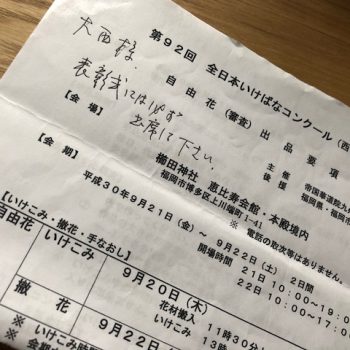 第92回 全日本いけばなコンクール(西
自由花(審査) 出品要項
大西様、
表彰式には必ず
出席して下さい。
主催
後援
帝国華道院九
福岡県・福岡市
【会場】
櫛田神社 恵比寿会館・本殿境内
福岡市博多区上川端町1-41
※ 電話の取次等はありません。
【会期】
平成30年9月21日(金)~ 9月22日(土) 2日間
開場時間 21日 10:00~19:0
22日 10:00~17:0
【いけこみ・撤花・手なおし】
自由花
いけこみ
9月20日(木)
花材搬入 11時30分
いけこみ 13時
撤 花
9月22日
※ いけこみ時間
※ 会期